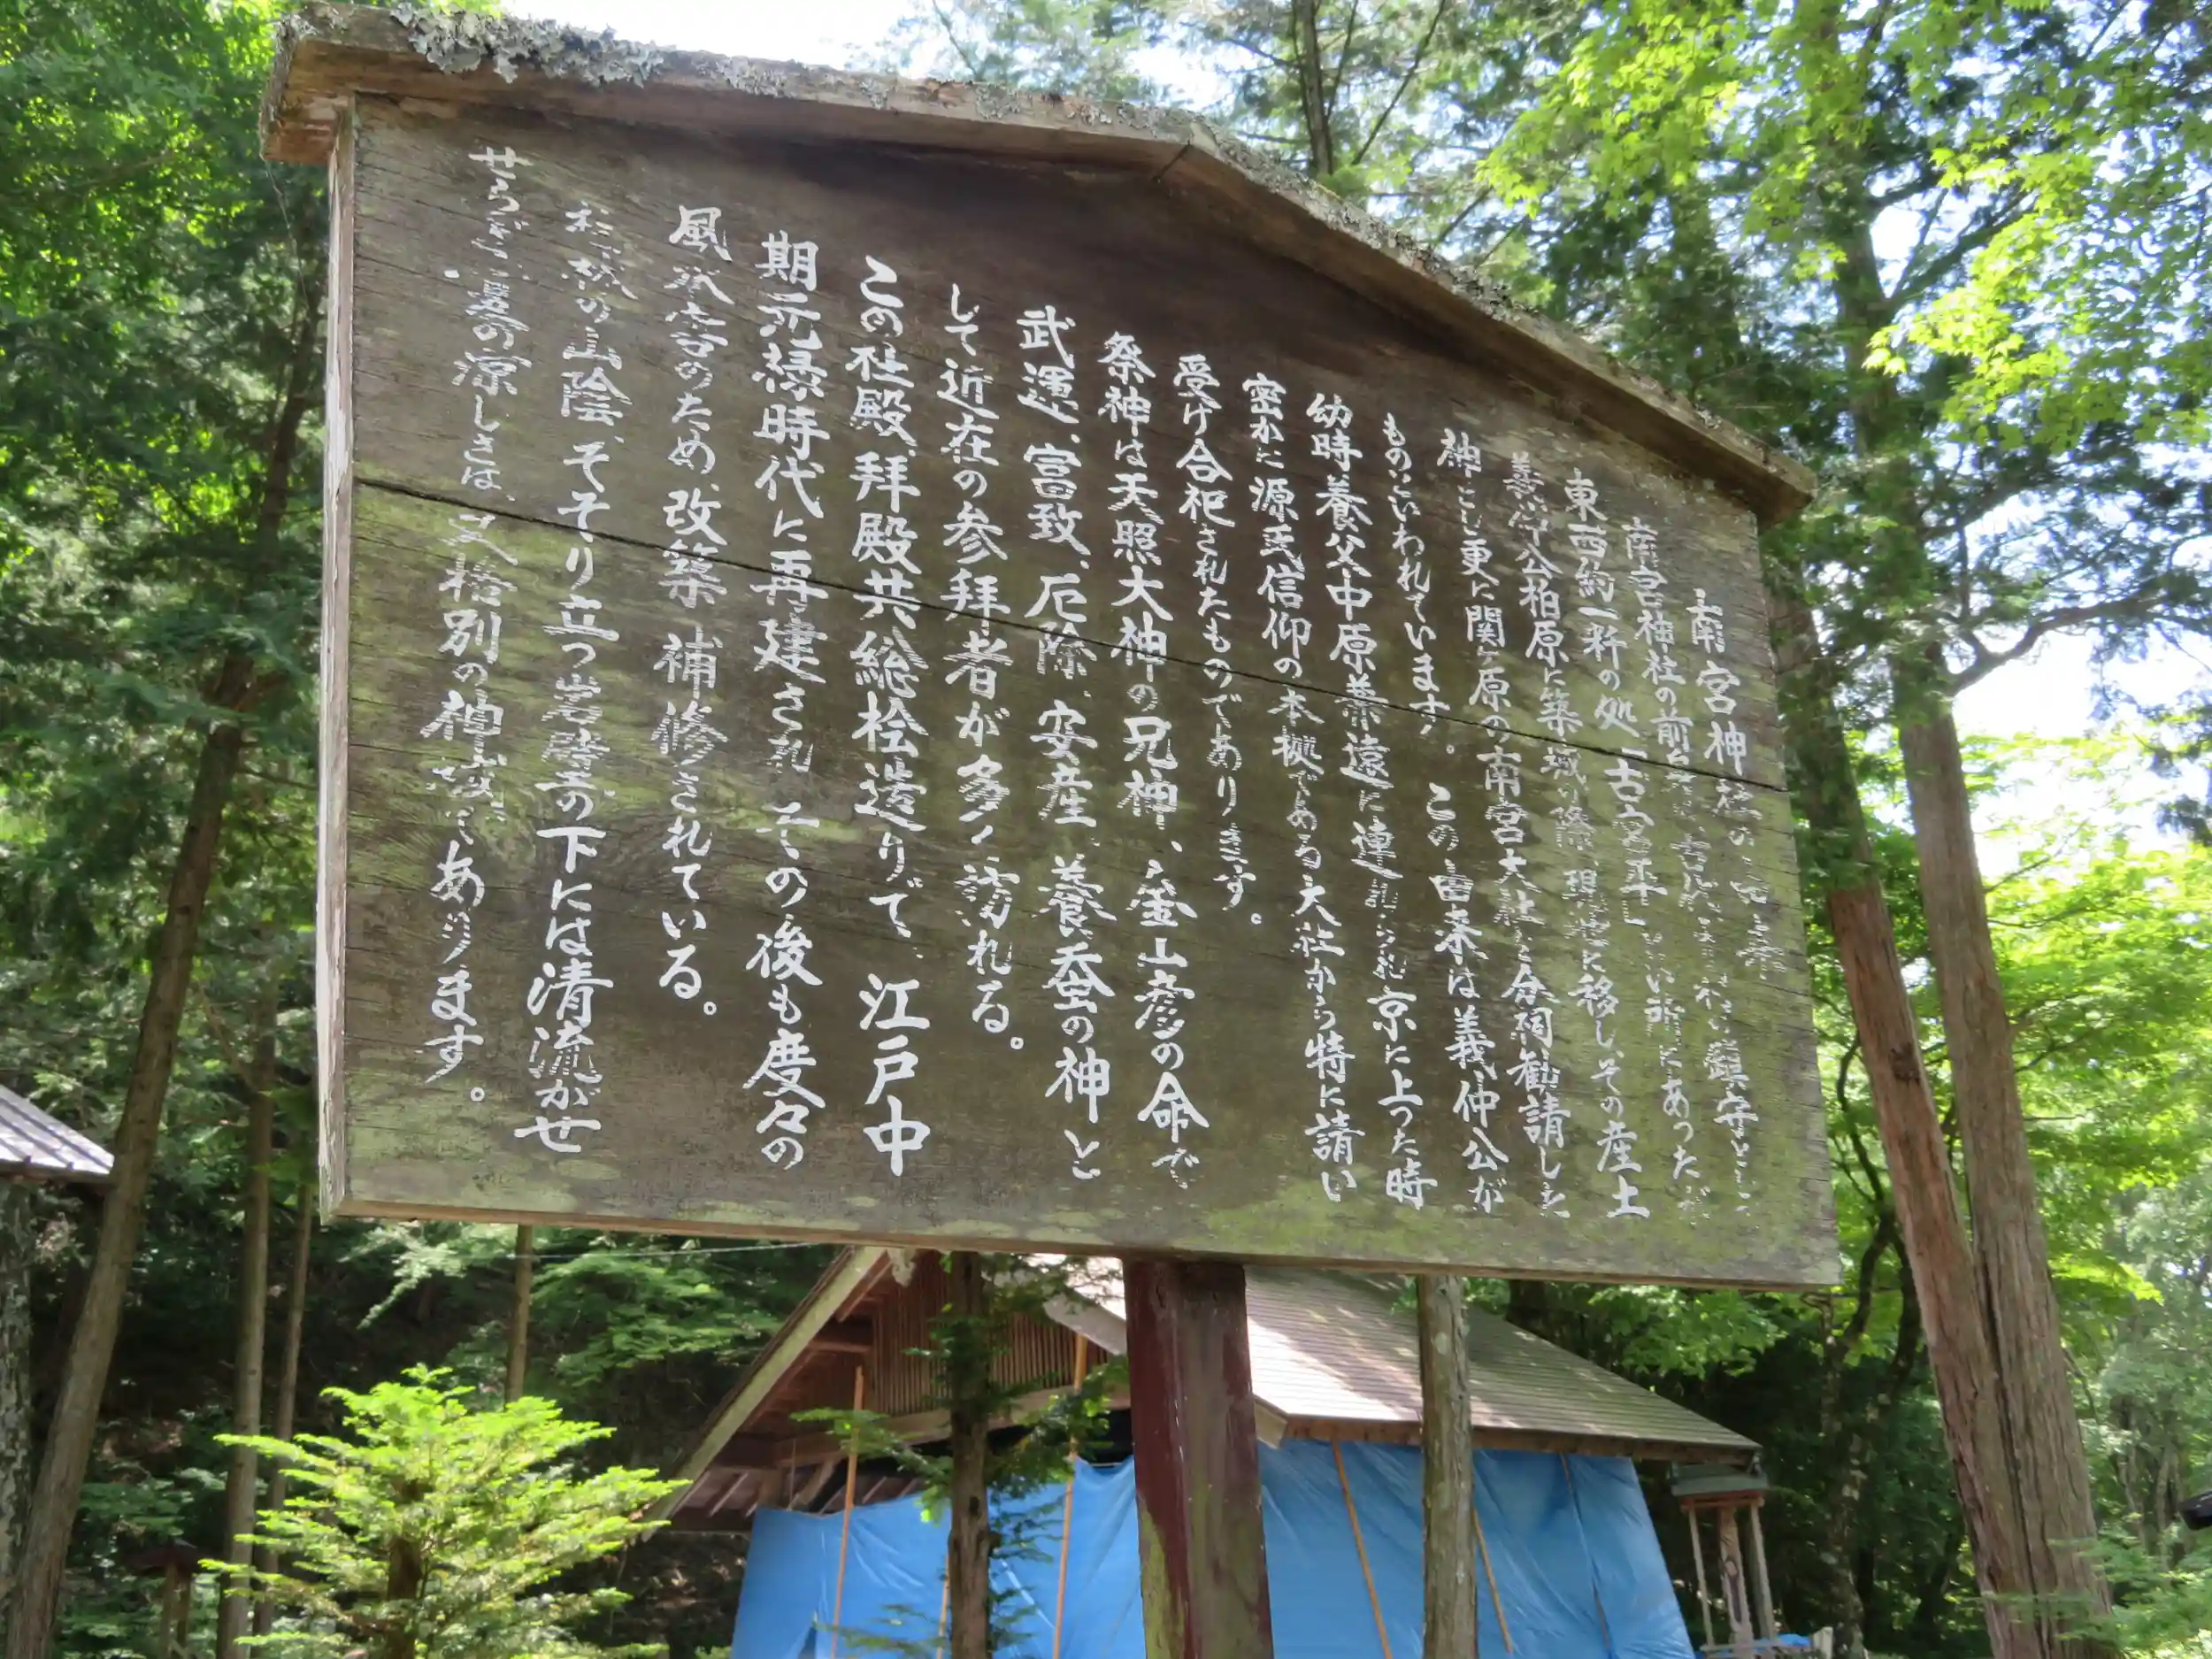 南宮神社の由来
南宮神社の前身は、古代は 鎮守とし
東西約一粁の処「古宮平」という所にあったが
義仲公柏原に築城の際、現地に移し、その産土
神とし更に関ヶ原の南宮大社を合祠勧請した
ものといわれています。この由来は義仲公が
幼時養父中原兼遠に連れられ京に上った時
密かに源氏信仰の本拠である大社から特に請い
受け合祀されたものであります。
祭神は天照大神の兄神、金山彦の命で
武運、富致、厄除、安産、養蚕の神と
して近在の参拝者が多く訪れる。
この社殿、拝殿共総桧造りで、江戸中
期元禄時代に再建され、その後も度々の
風水害のため、改築、補修されている。
の山陰、そそり立つ岩壁の下には清流がせ
せらぎ、夏の涼しさは、又格別の神域であります。